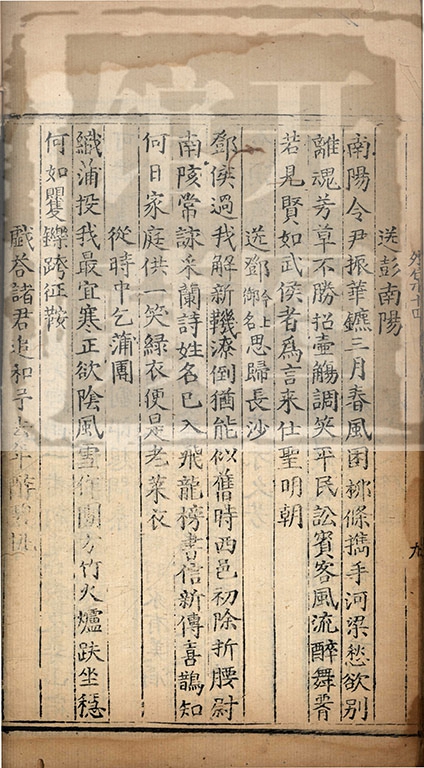 送彭南陽
南陽令尹振華鑣三月春風困柳條攜手河梁愁欲別
離魂芳草不勝招壺觴調笑平民訟賓客風流醉舞
若見賢如武侯者為言来仕聖明朝
送鄧今上御名思歸長沙
鄧侯過我解新鞿潦倒猶能似舊時西邑初除折腰尉
南陔常詠采蘭詩姓名已入飛龍榜書信新傳喜鵲知
何日家庭供一笑綠衣便是老萊衣
從時中乞蒲團
織蒲投我最宜寒正欲陰風雪作團方竹火爐趺坐穩
何如矍鑠跨征鞍
戲答諸君追和予去年醉碧桃
九